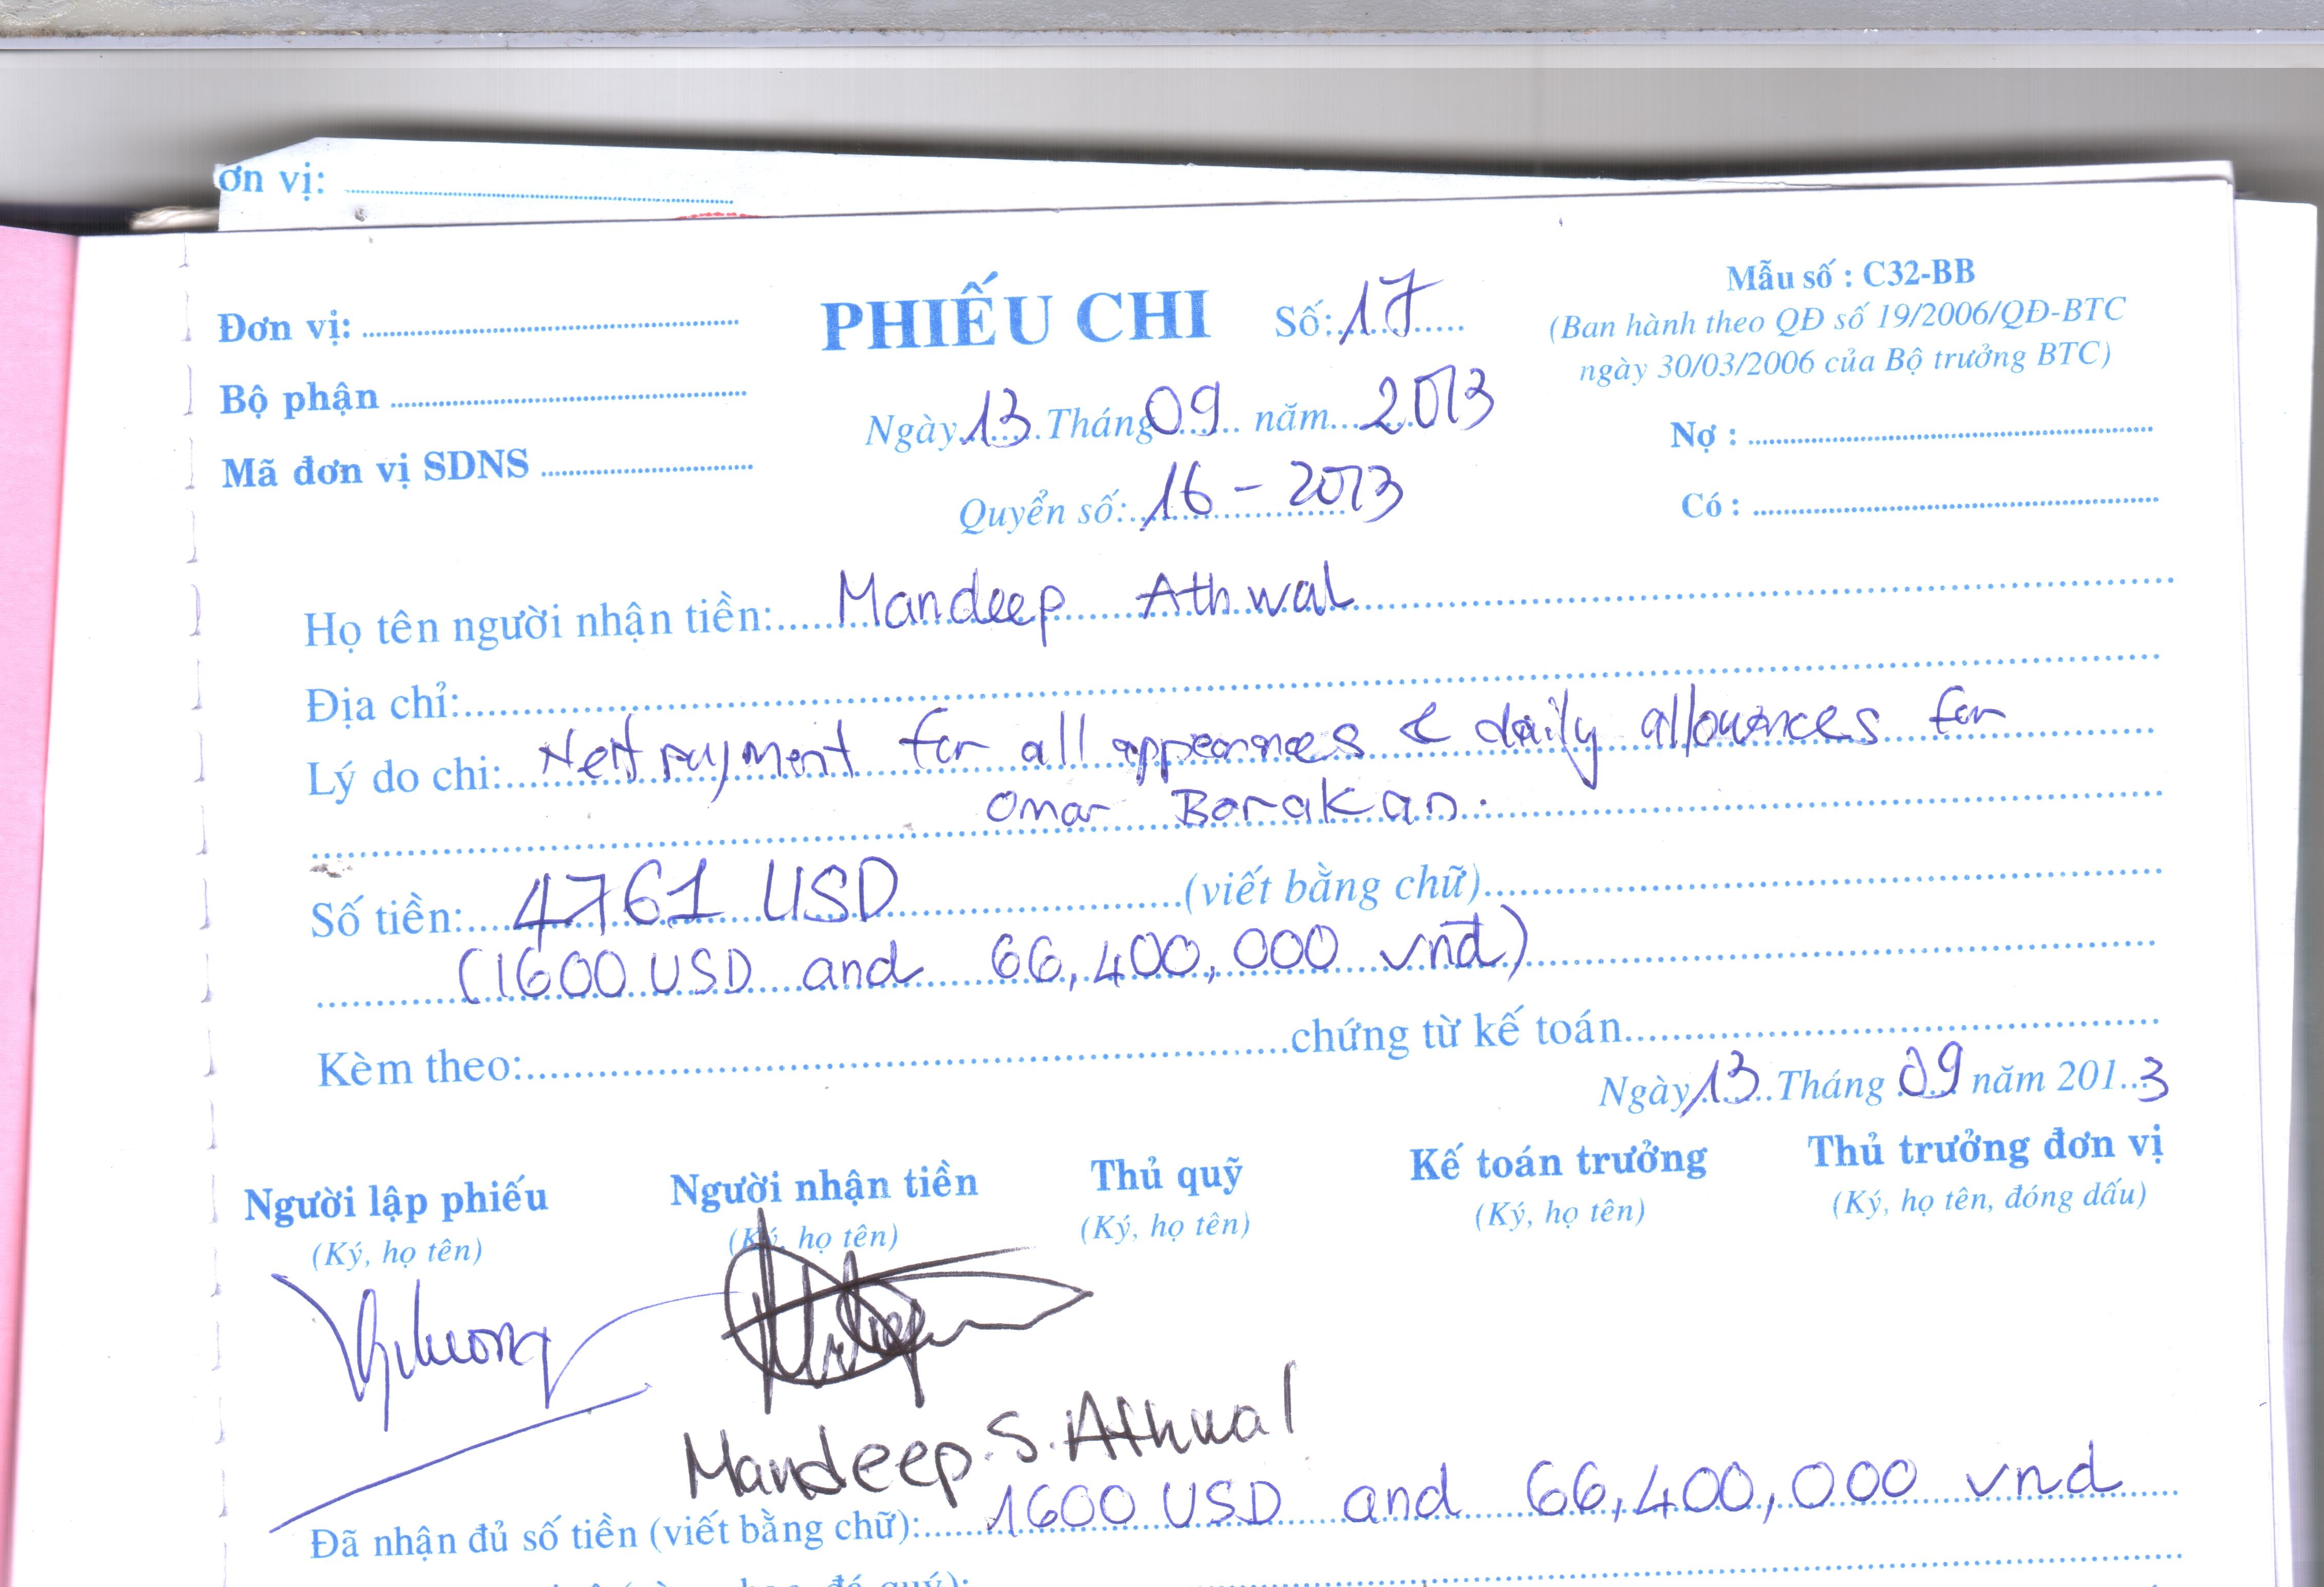 ơn vị:
PHIẾU CHI Số: 17
Mẫu số : C32-BB
(Ban hành theo QĐ số 19/2006/QĐ-BTC
ngày 30/03/2006 của Bộ trưởng BTC)
Đơn vị:
Bộ phận
Mã đơn vị SDNS
Ngày 13 Tháng 09 năm 2013
Quyển số: 16 - 2013
Nợ :
Có :
Họ tên người nhận tiền: Mandeep Athwal
Địa chỉ:
Lý do chi: Nett payment for all appearances & daily allowances for
Omar Borakan.
Số tiền: 4761 USD (viết bằng chữ)
(1600 USD and 66,400,000 vnđ)
Kèm theo: chứng từ kế toán
Ngày 13 Tháng 09 năm 2013
Người lập phiếu Người nhận tiền Thủ quỹ Kế toán trưởng Thủ trưởng đơn vị
(Ký, họ tên) (Ký, họ tên) (Ký, họ tên) (Ký, họ tên) (Ký, họ tên, đóng dấu)
Mandeep.S.Athwal
Đã nhận đủ số tiền (viết bằng chữ): 1600 USD and 66,400,000 vnd